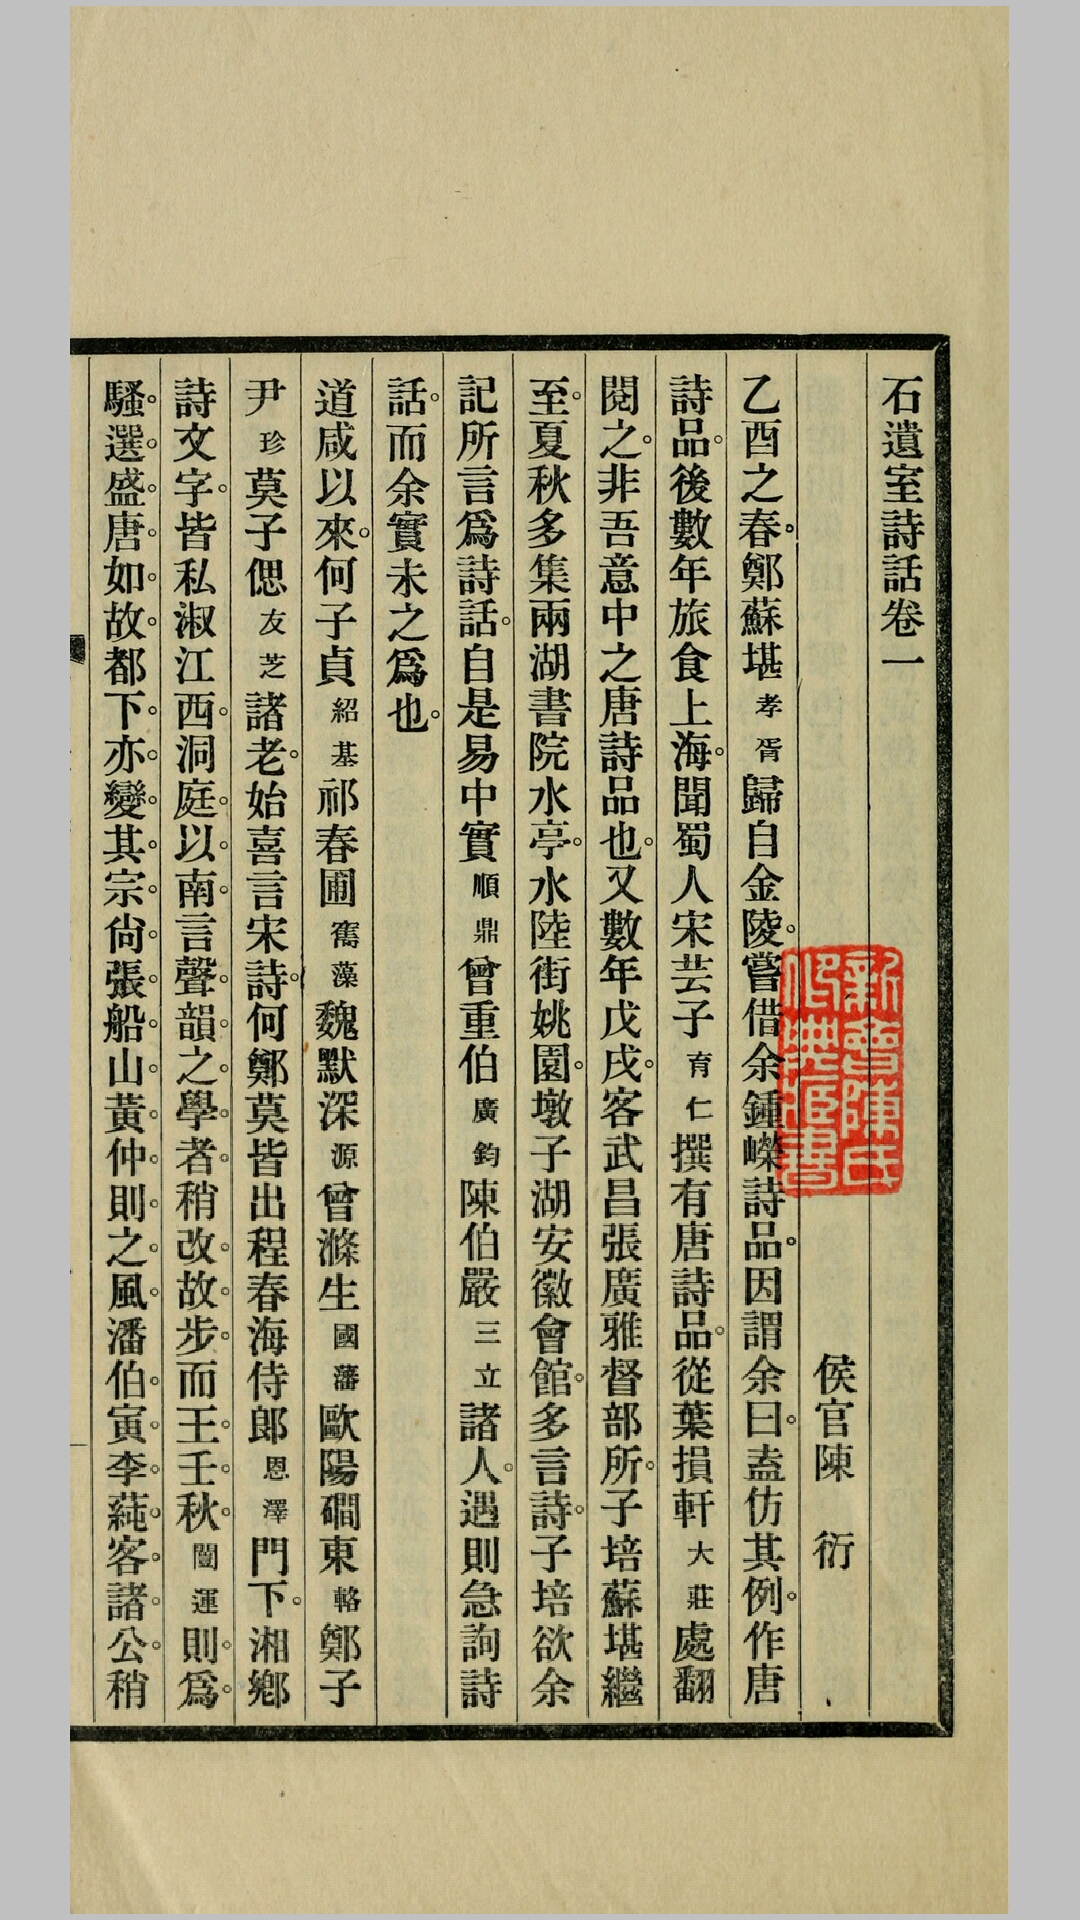 石遺室詩話卷一
侯官陳 衍
乙酉之春。鄭蘇堪孝胥歸自金陵。嘗借余鍾嶸詩品。因謂余曰。盍仿其例。作唐
詩品。後數年旅食上海。聞蜀人宋芸子育仁撰有唐詩品。從葉損軒大莊處翻
閱之。非吾意中之唐詩品也。又數年戊戌。客武昌張廣雅督部所。子培蘇堪繼
至。夏秋多集兩湖書院水亭。水陸街姚園。墩子湖安徽會館。多言詩。子培欲余
記所言爲詩話。自是易中實順鼎曾重伯廣鈞陳伯嚴三立諸人。遇則急詢詩
話。而余實未之爲也。
道咸以來。何子貞紹基祁春圃寯藻魏默深源曾滌生國藩歐陽磵東輅鄭子
尹珍莫子偲友芝諸老。始喜言宋詩。何鄭莫皆出程春海侍郎恩澤門下。湘鄉
詩文字。皆私淑江西。洞庭。以。南。言聲。韻。之。學。者。稍。改。故。步。而王。壬。秋。闓運則。爲。
騷。選。盛。唐。如。故。都。下。亦。變。其。宗。尙。張。船。山。黃。仲。則。之。風。潘。伯。寅。李。蒓。客。諸。公。稍
新會陳氏
書